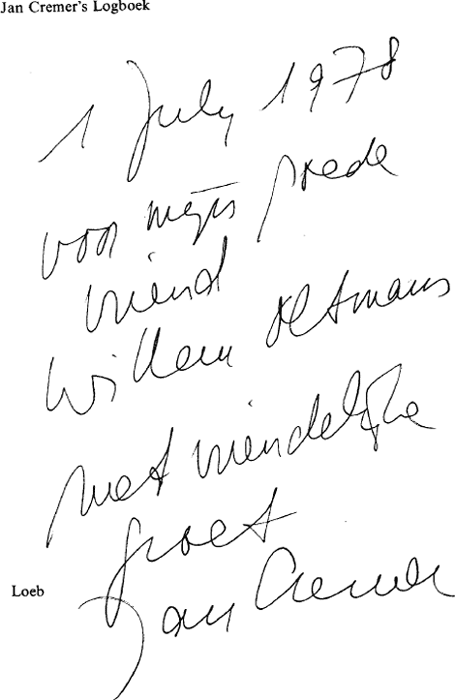 Jan Cremer's Logboek
1 July 1978
voor mijn goede
vriend
Willem Oltmans
met vriendelijke
groet
Loeb
Jan Cremer